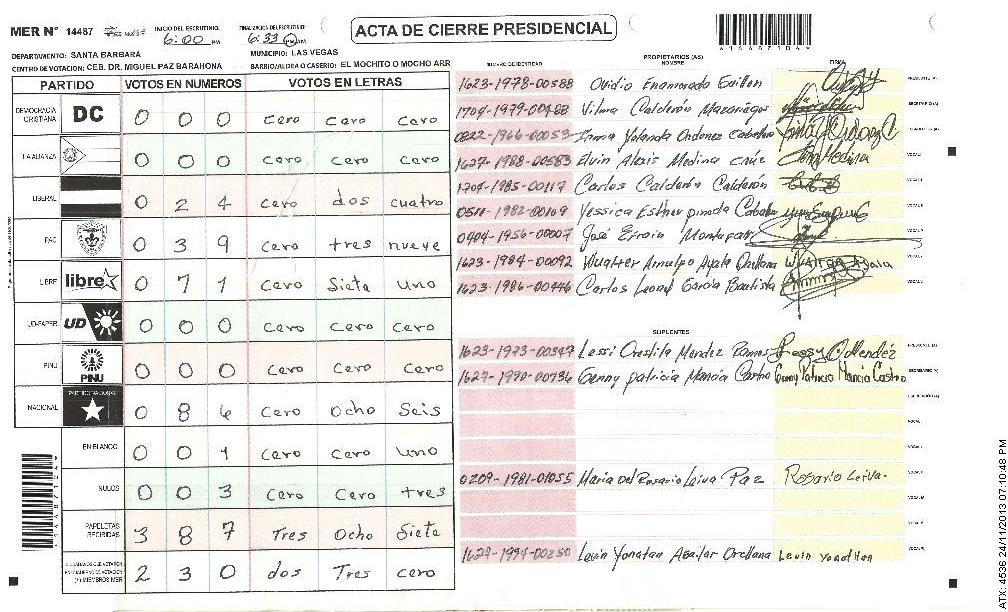 MER N° 14487
INICIO DEL ESCRUTINIO: 6:00 PM
FINALIZACION DEL ESCRUTINIO: 6:33 PM
ACTA DE CIERRE PRESIDENCIAL
DEPARTAMENTO: SANTA BARBARA
MUNICIPIO: LAS VEGAS
CENTRO DE VOTACION: CEB. DR. MIGUEL PAZ BARAHONA
BARRIO/ALDEA O CASERIO: EL MOCHITO O MOCHO ARR
PARTIDO VOTOS EN NUMEROS VOTOS EN LETRAS
DEMOCRACIA CRISTIANA DC 0 0 0 cero cero cero
LA ALIANZA 0 0 0 cero cero cero
LIBERAL 0 2 4 cero dos cuatro
PAC 0 3 9 cero tres nueve
LIBRE libre 0 7 1 cero Siete uno
UD-FAPER UD 0 0 0 cero cero cero
PINU PINU 0 0 0 cero cero cero
NACIONAL PARTIDO NACIONAL 0 8 6 cero Ocho Seis
EN BLANCO 0 0 1 cero cero uno
NULOS 0 0 3 cero cero tres
PAPELETAS RECIBIDAS 3 8 7 Tres Ocho Siete
CIUDADANOS QUE VOTARON (+) MIEMBROS MER 2 3 0 dos Tres cero
NUMERO DE IDENTIDAD PROPIETARIOS (AS) NOMBRE FIRMA
1623-1978-00588 Ovidio Enamorado
1704-1979-00488 Vilma Calderón
0822-1966-00053 Yolanda Ordonez
1627-1988-00583 Elvin Alexis Medina cruz
1704-1985-00117 Carlos Calderón Calderón
0511-1982-00109 Yessica Esther pineda
0404-1956-00007 José Efrain
1623-1984-00092 Wualter Arnulfo Ayala Orellana
1623-1986-00446 Carlos Leonel Garcia Bautista
SUPLENTES
1623-1973-00347 Mendez Ramos
1627-1990-00736 Genny patricia Mancia Castro Genny Patricia Mancia Castro
0209-1981-01055 Maria Del Rosario Leiva Paz Rosario Leiva.
1624-1994-00250 Levin Yonatan Aguilar Orellana Levin Yonathan
ATX: 4536 24/11/2013 07:10:48 PM